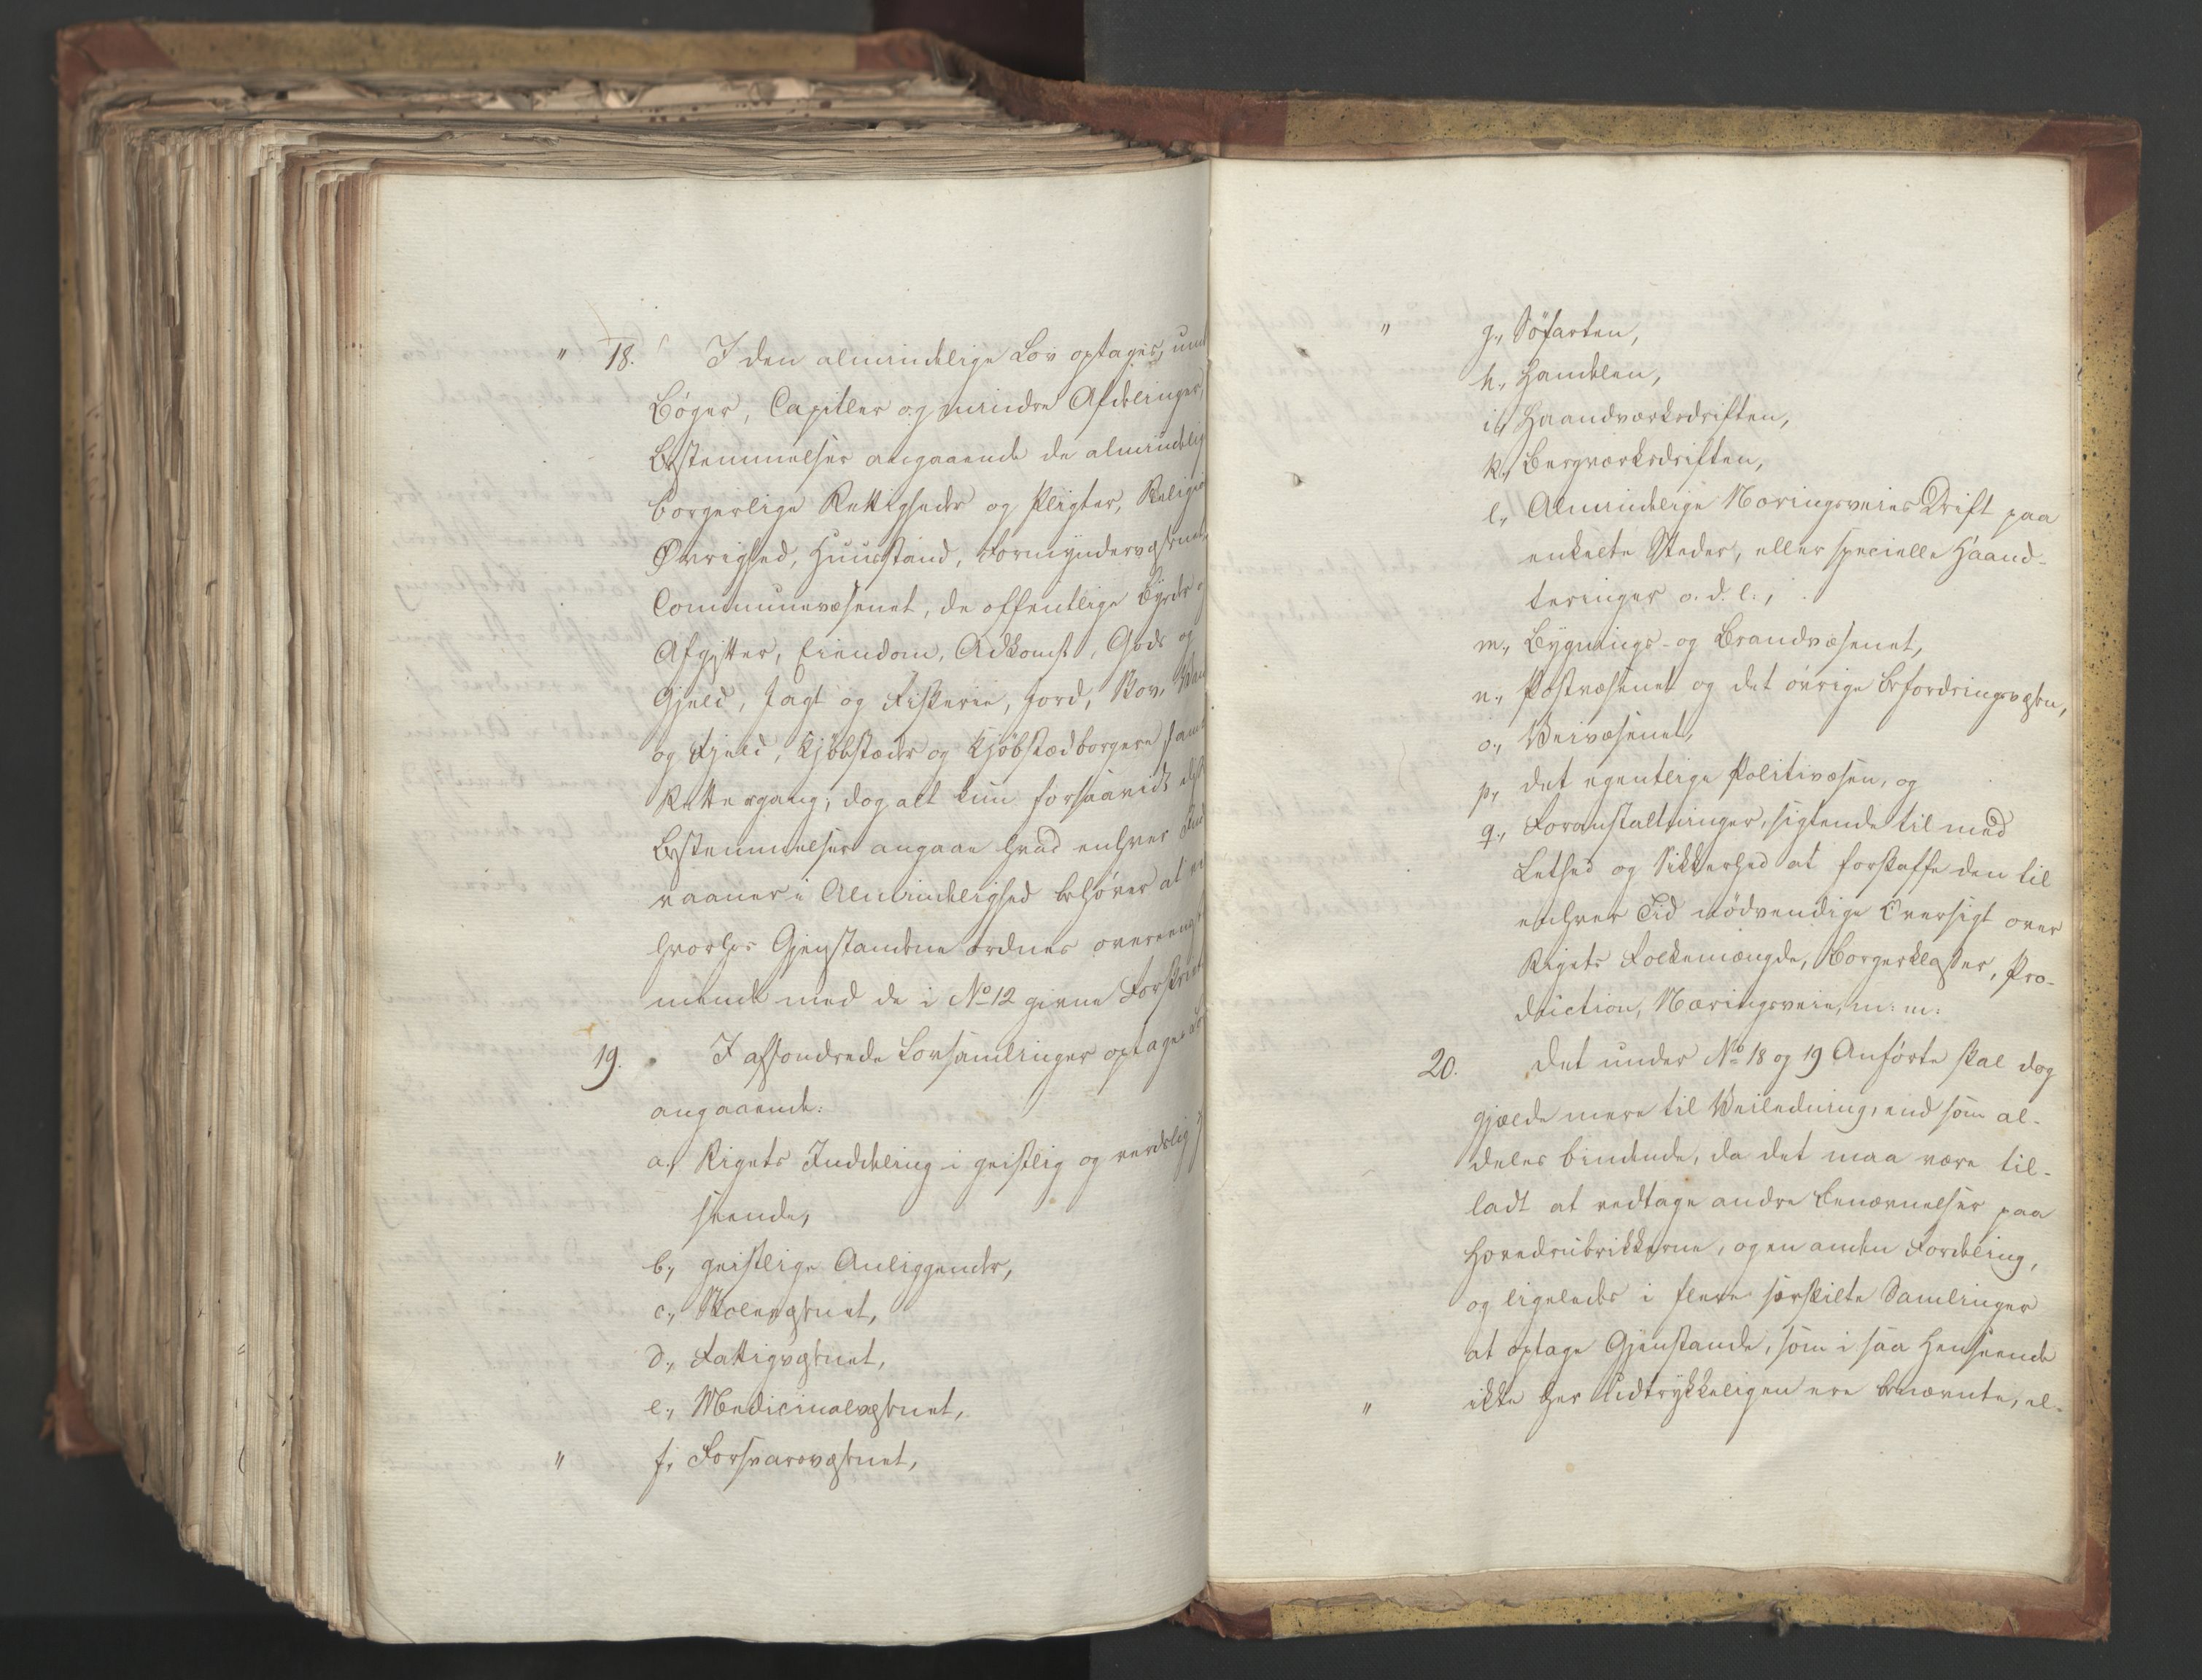 " 18. I den almindelige Lov optages, und
Bøger, Capitler og mindre Afdelinger,
Bestemmelser angaaende de almindelig
borgerlige Rettigheder og Pligter, Religio
Øvrighed, Huusstand, Formyndervæsenet,
Communevæsenet, de offentlige Byrder o
Afgifter, Eiendom, Adkomst, Gods og
Gjeld, Jagt og Fiskerie, Jord, Skov, Van
og Fjeld, Kjøbstæder og Kjøbstædborgere samt
Rettergang, dog alt kun forsaavidt
Bestemmelser angaae hvad enhver
vaaner i Almindelighed behøver at
hvorhos Gjenstandene ordnes overeens
mende med de i No 12 givne Forskrift
19. I afsondrede Lovsamlinger optages
angaaende:
a., Rigets Inddeling i geistlig og verdslig
seende,
b., geistlige Anliggender,
c., Skolevæsenet,
d., Fattigvæsenet,
e., Medicinalvæsenet,
" f., Forsvarsvæsenet,
" g., Søfarten,
h., Handelen,
i., Haandværksdriften,
k., Bergværksdriften,
l., Almindelige Næringsveies Drift paa
enkelte Steder, eller specielle Haand-
teringer o. d. l.,
m., Bygnings- og Brandvæsenet,
n., Postvæsenet og det øvrige Befordringsvæsen,
o., Veivæsenet,
p., det egentlige Politivæsen, og
q., Foranstaltninger, sigtende til med
Lethed og Sikkerhed at forskaffe den til
enhver Tid nødvendige Oversigt over
Rigets Folkemængde, Borgerklasser, Pro-
duction, Næringsveie, m: m:
20. Det under No 18 og 19 Anførte skal dog
gjælde mere til Veiledning, end som al-
deles bindende, da det maa være til-
ladt at vedtage andre Benævnelser paa
Hovedrubrikkerne, og en anden Fordeling,
og ligeledes i flere særskilte Samlinger
at optage Gjenstande, som i saa Henseende
" ikke her udtrykkeligen ere benævnte, el-